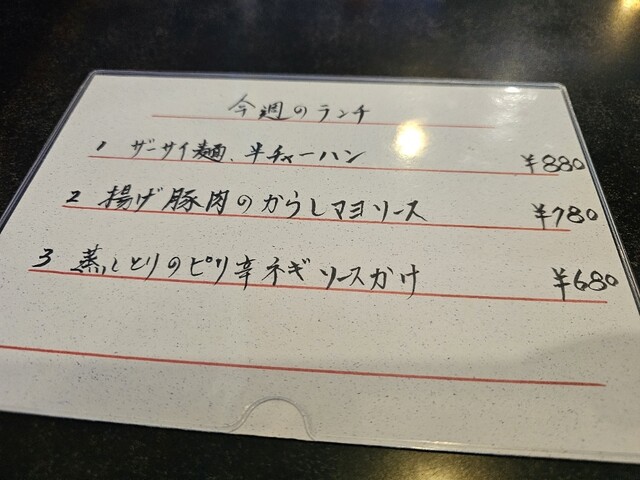 今週のランチ
1 ザーサイ麺、半チャーハン ¥880
2 揚げ豚肉のからしマヨソース ¥780
3 蒸しとりのピリ辛ネギソースかけ ¥680